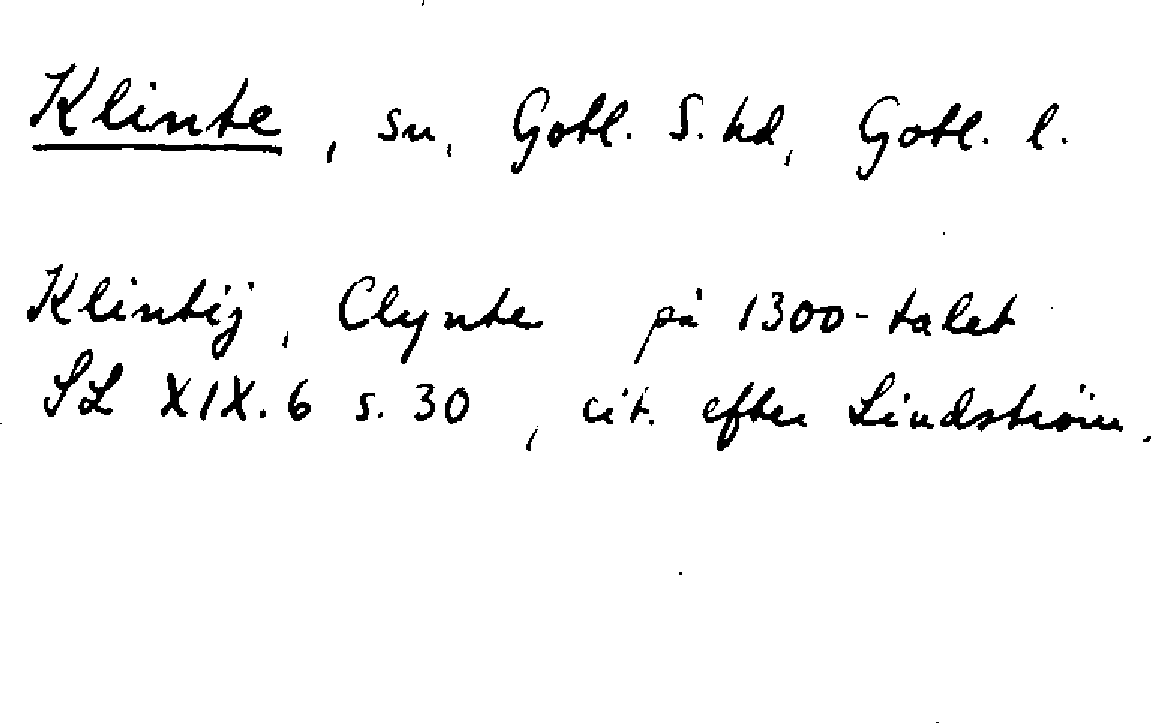 Klinte, sn, Gotl. S. hd, Gotl. l.
Klintij, Clynte på 1300-talet
SL XIX.6 s. 30, cit. efter Lindström.